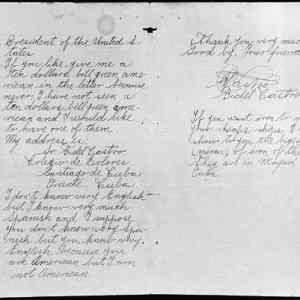 President of the United S-
tates
If you like, give me a
ten dollars bill green ame-
rican, in the letter, because
never, I have not seen a
ten dollars bill green ame-
rican and I would like
to have one of them.
My address is:
Sr. Fidel Castro
Colegio de Dolores
Santiago de Cuba
Oriente Cuba
I don't know very English
but I know very much
Spanish and I suppose
you don't know very Spa-
nish but you know very
English because you
are American but I am
not American.
Thank you very much
Good by. Your friend
Fidel Castro
If you want iron to
your ships I
show to you the
of iron of the
They are in Mayarí
Cuba